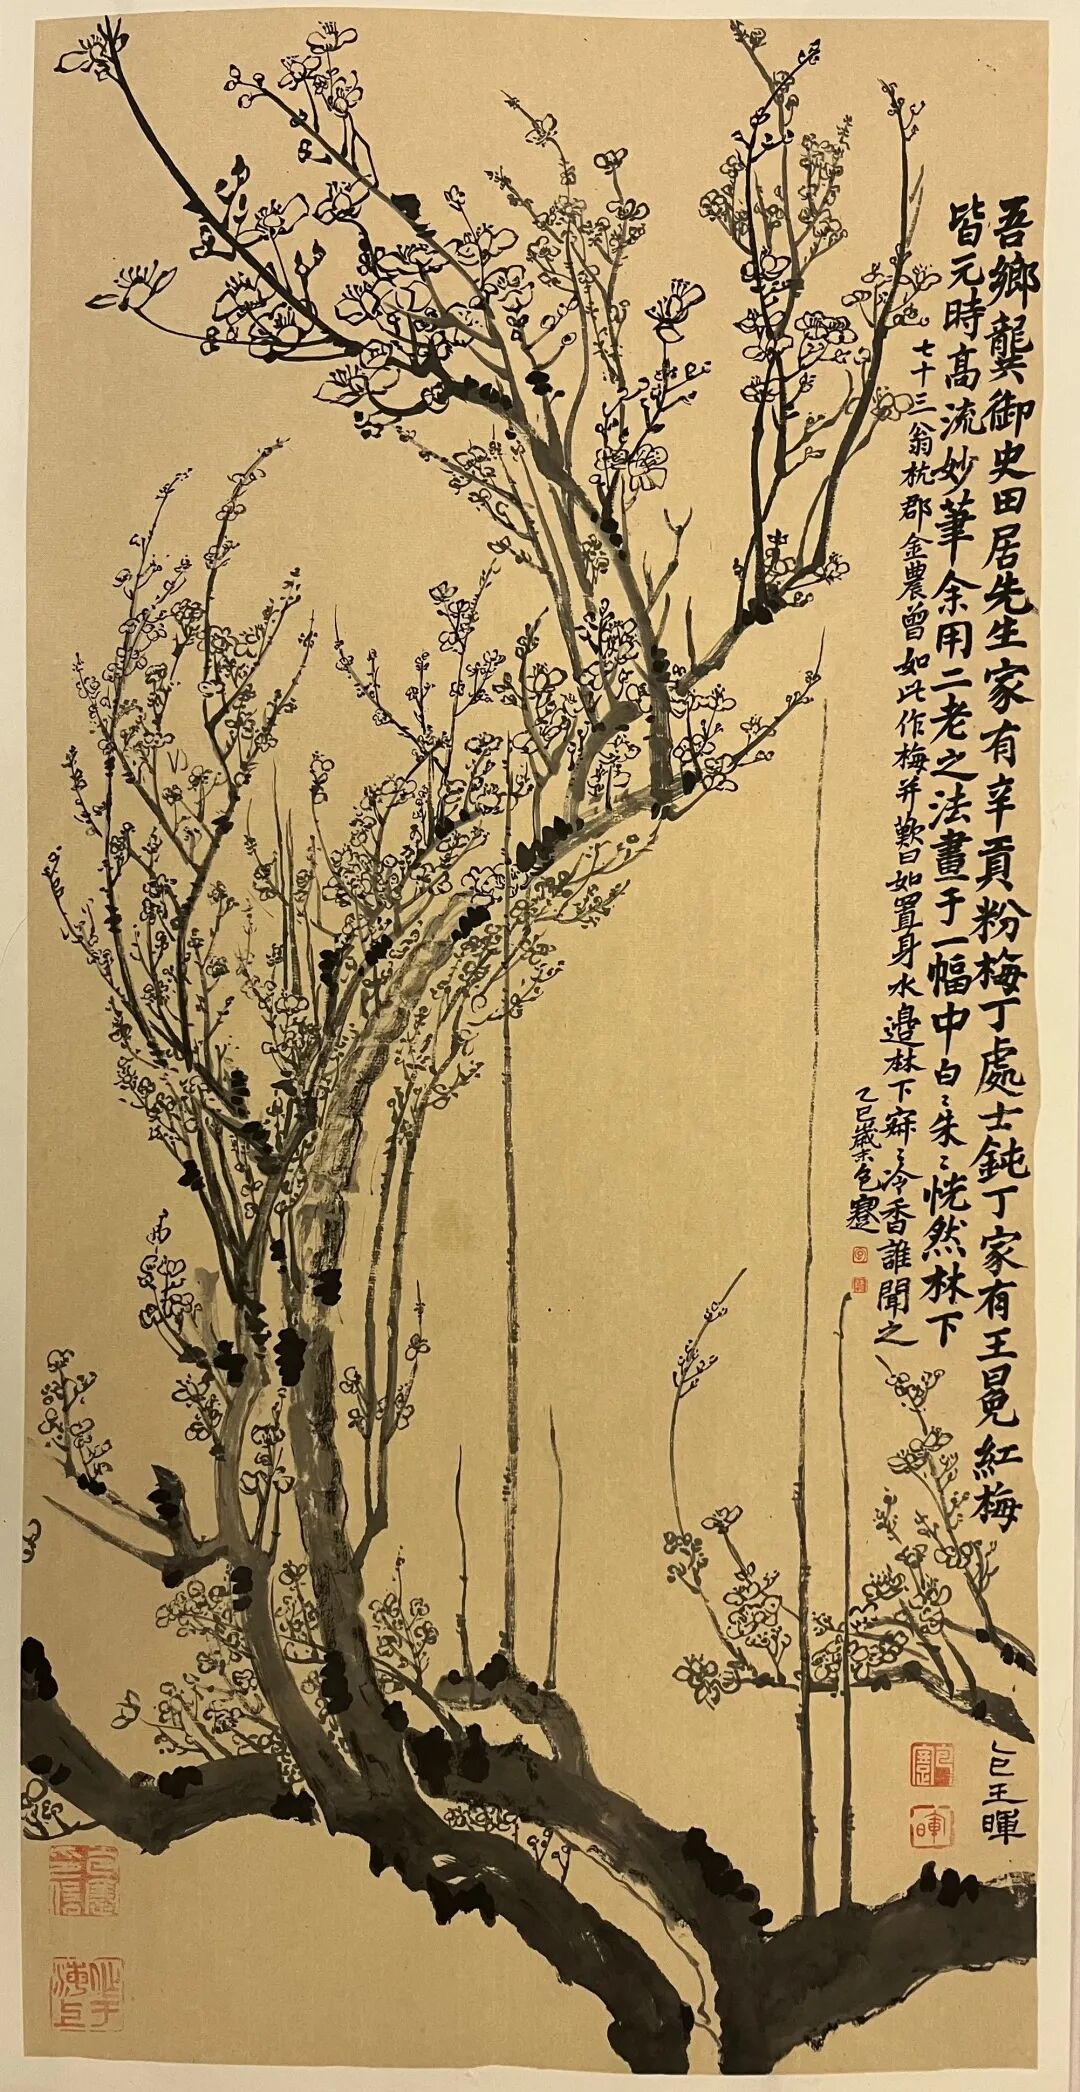 吾鄉龔御史田居先生家有辛貢粉梅丁處士鈍丁家有王冕紅梅
皆元時高流妙筆余用二老之法畫于一幅中白﹦朱﹦恍然林下
七十三翁杭郡金農曾如此作梅并歎曰如置身水邊林下寂﹦冷香誰聞之
乙巳歲末包蹇
包王暉